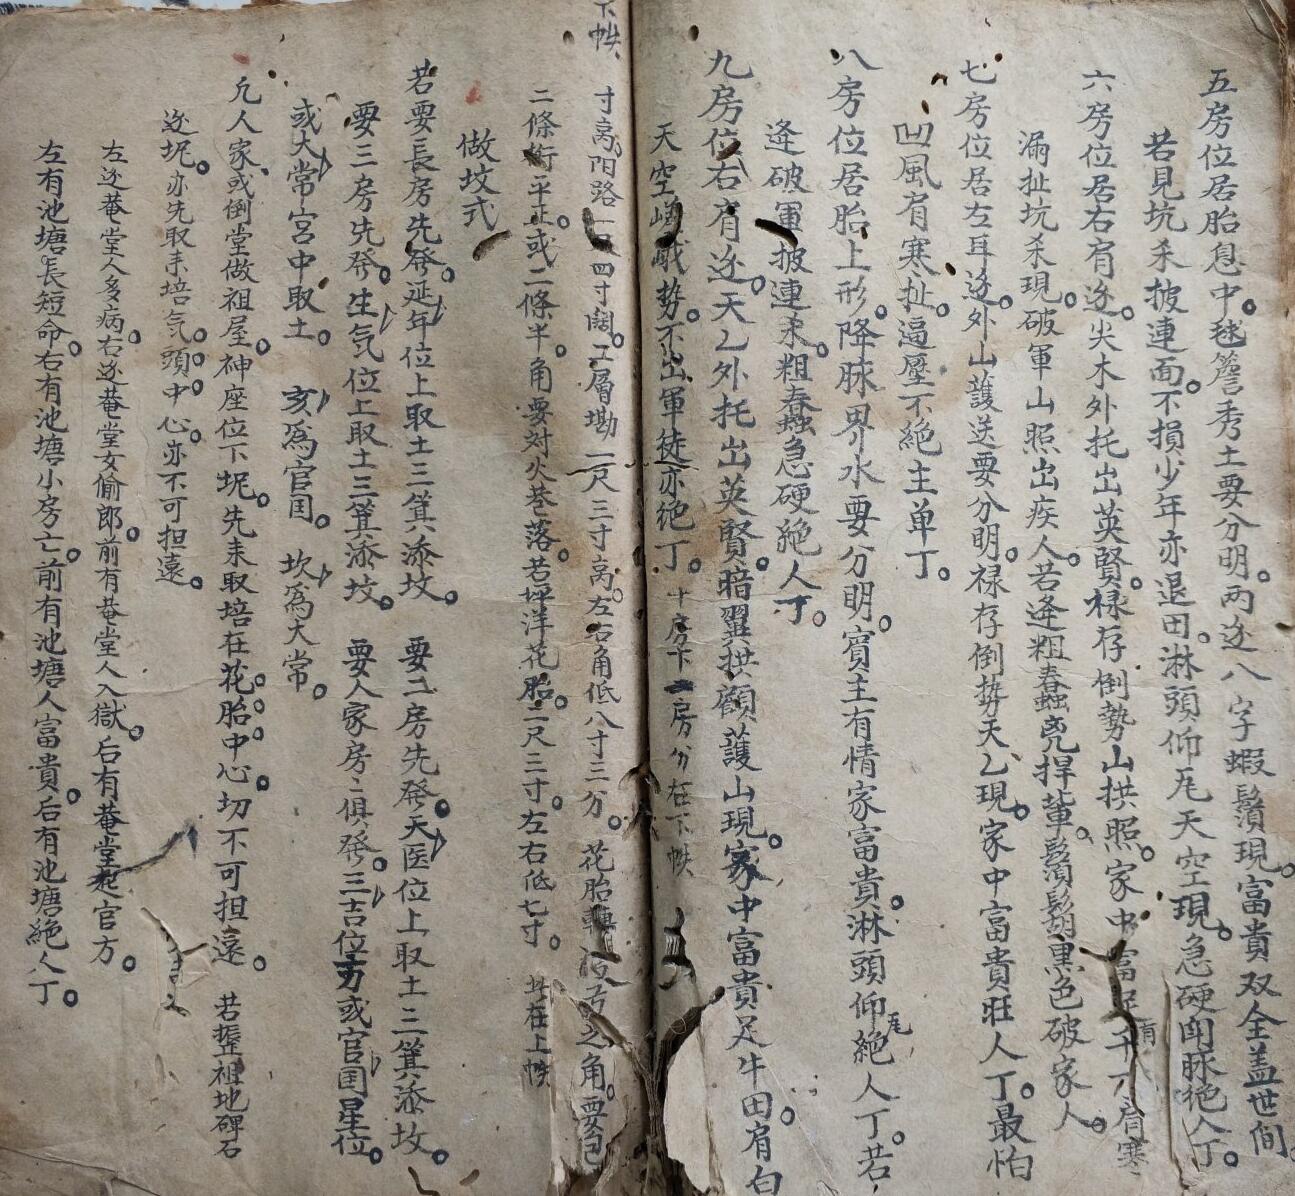 五房位居胎息中。毬簷秀土要分明。两边八字蝦鬚現。富貴双全盖世间。
若見坑杀披連面。不損少年亦退田。淋頭仰尾天空現。急硬闲脉绝人丁。
六房位居右肩边。尖木外托出英賢。禄存倒勢山拱照。家中富足千
有
肩寒
漏扯坑杀現。破軍山照出疾人。若逢粗蠢兇捍軰。鬚鬍黒色破家人。
七房位居左耳边。外山護送要分明。禄存倒势天乙現。家中富貴旺人丁。最怕
凹風肩寒扯。逼壓不绝主单丁。
八房位居胎上形。降脉界水要分明。賓主有情家富貴。淋頭仰
尾
絶人丁。若
逢破軍披連来。粗蠢急硬絶人丁。
九房位右肩边。天乙外托出英賢。暗翼拱顧護山現。家中富貴足牛田。肩白
天空嵯峨势。不出軍徒亦绝丁。十房下二房分在下帙
下帙
寸高阳路一尺四寸阔。工層墈一尺三寸高。左右角低八寸三分。花胎轉 之角。要
二條衔平正。或二條半角要对火巷落。若坪洋花胎。一尺三寸。左右低七寸。 在上帙
做坟式
若要長房先発。延年位上取土三箕添坟。 要二房先発。天医位上取土三箕添坟。
要三房先発。生气位上取土三箕添坟。 要人家房〻俱発。三吉位方或官国星位。
或大常宫中取土。 亥為官国。 坎為大常。
凢人家或倒堂做祖屋。神座位下坭。先未取培在花胎中心。切不可担遠。 若整祖地碑石
边坭。亦先取未培気頭中心。亦不可担遠。
左边菴堂人多病。右边菴堂女偷郎。前有菴堂人入獄。后有菴堂起官方。
左有池塘長短命。右有池塘小房亡。前有池塘人富貴。后有池塘絶人丁。